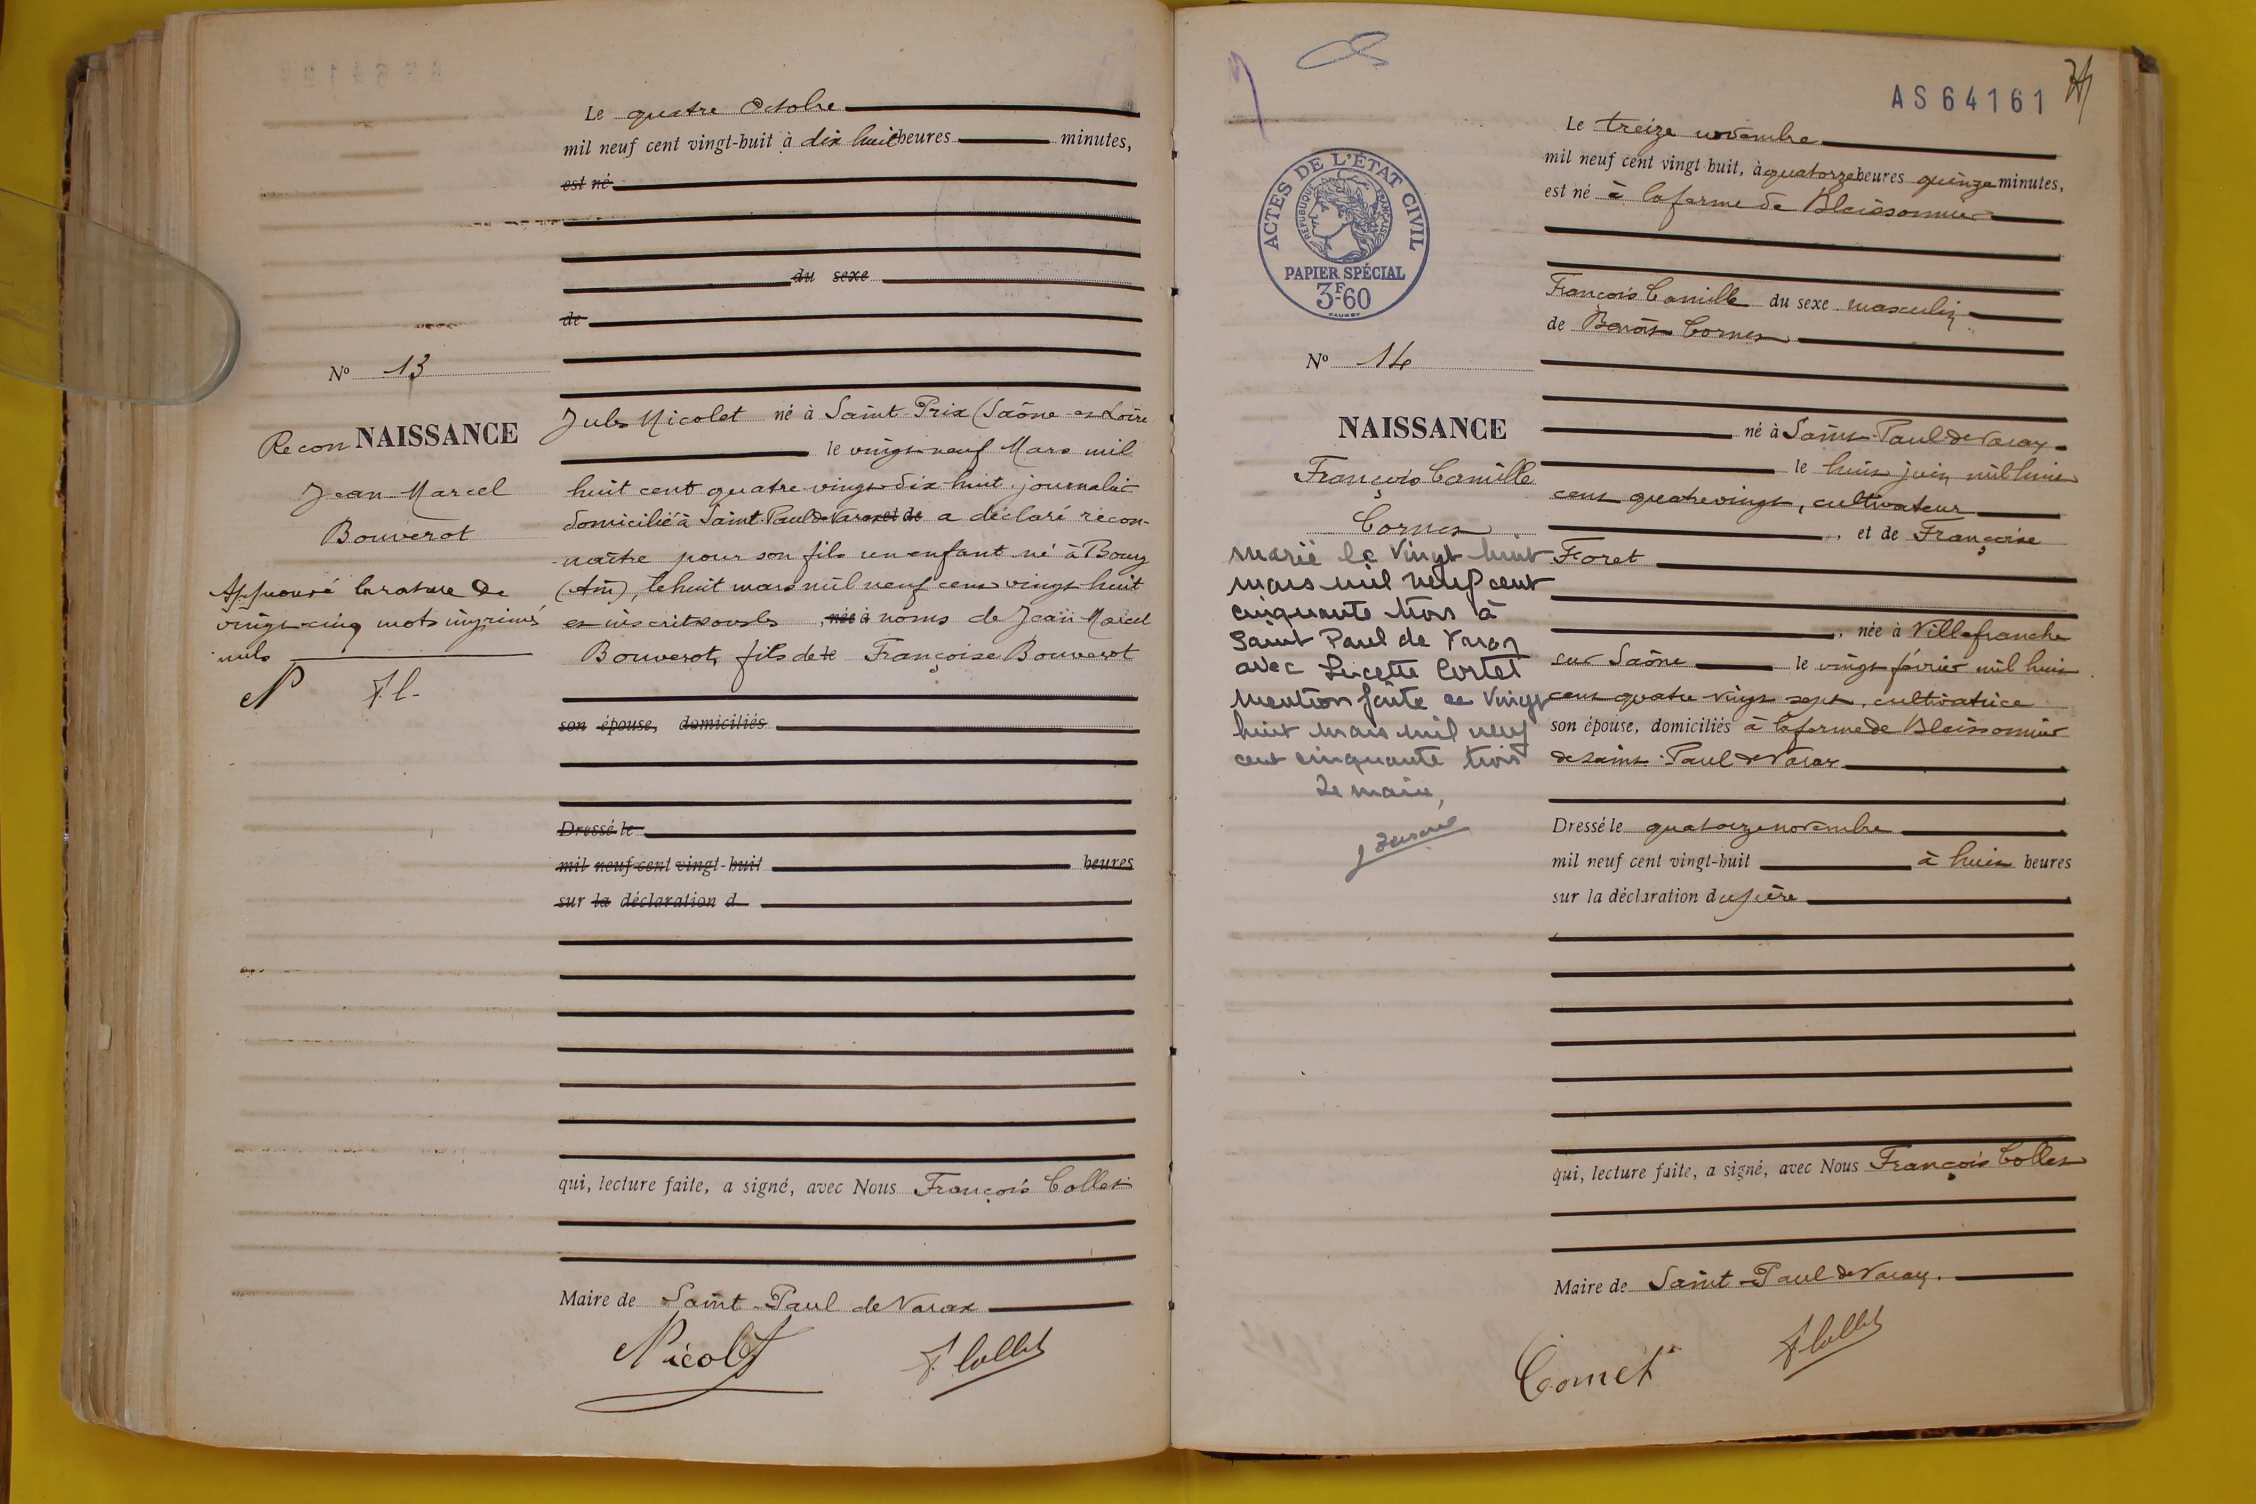 Le quatre Octobre
mil neuf cent vingt-huit à dix huit heures minutes,
est né
du sexe
de
Nº 13
Recon NAISSANCE
Jean Marcel
Bouverot
Approuvé la rature de
vingt-cinq mots imprimés
nuls
N F.C.
Jules Nicolet né à Saint-Prix (Saône et Loire
le vingt neuf Mars mil
huit cent quatre vingt dix huit, journalier
domicilié à Saint Paul de Varax et de a déclaré recon-
naître pour son fils un enfant né à Bourg
(Ain), le huit mars mil neuf cent vingt huit
et inscrit sous les , née à noms de Jean Marcel
Bouverot, fils de le Françoise Bouverot
son épouse, domiciliés
Dressé le
mil neuf cent vingt-huit heures
sur la déclaration d
qui, lecture faite, a signé, avec Nous François Collet
Maire de Saint-Paul de Varax
Nicolet F. Collet
AS64161
Le treize novembre
mil neuf cent vingt huit, à quatorze heures quinze minutes,
est né à la ferme de
ACTES DE L'ÉTAT CIVIL
RÉPUBLIQUE FRANÇAISE
PAPIER SPÉCIAL
3F.60
François Camille du sexe masculin
de Benoît Cornet
Nº 14
NAISSANCE
François Camille
Cornet
marié le vingt huit
mars mil neuf cent
cinquante trois à
Saint Paul de Varax
avec Lucette Cortet
Mention faite ce vingt
huit mars mil neuf
cent cinquante trois
Le maire,
né à Saint-Paul de Varax
le huit juin mil huit
cent quatre vingt, cultivateur
, et de Françoise
Foret
, née à Villefranche
sur Saône le vingt février mil huit
cent quatre vingt sept, cultivatrice
son épouse, domiciliés à la ferme de
de Saint-Paul de Varax
Dressé le quatorze novembre
mil neuf cent vingt-huit à huit heures
sur la déclaration du père
qui, lecture faite, a signé, avec Nous François Collet
Maire de Saint-Paul de Varax.
Cornet F. Collet